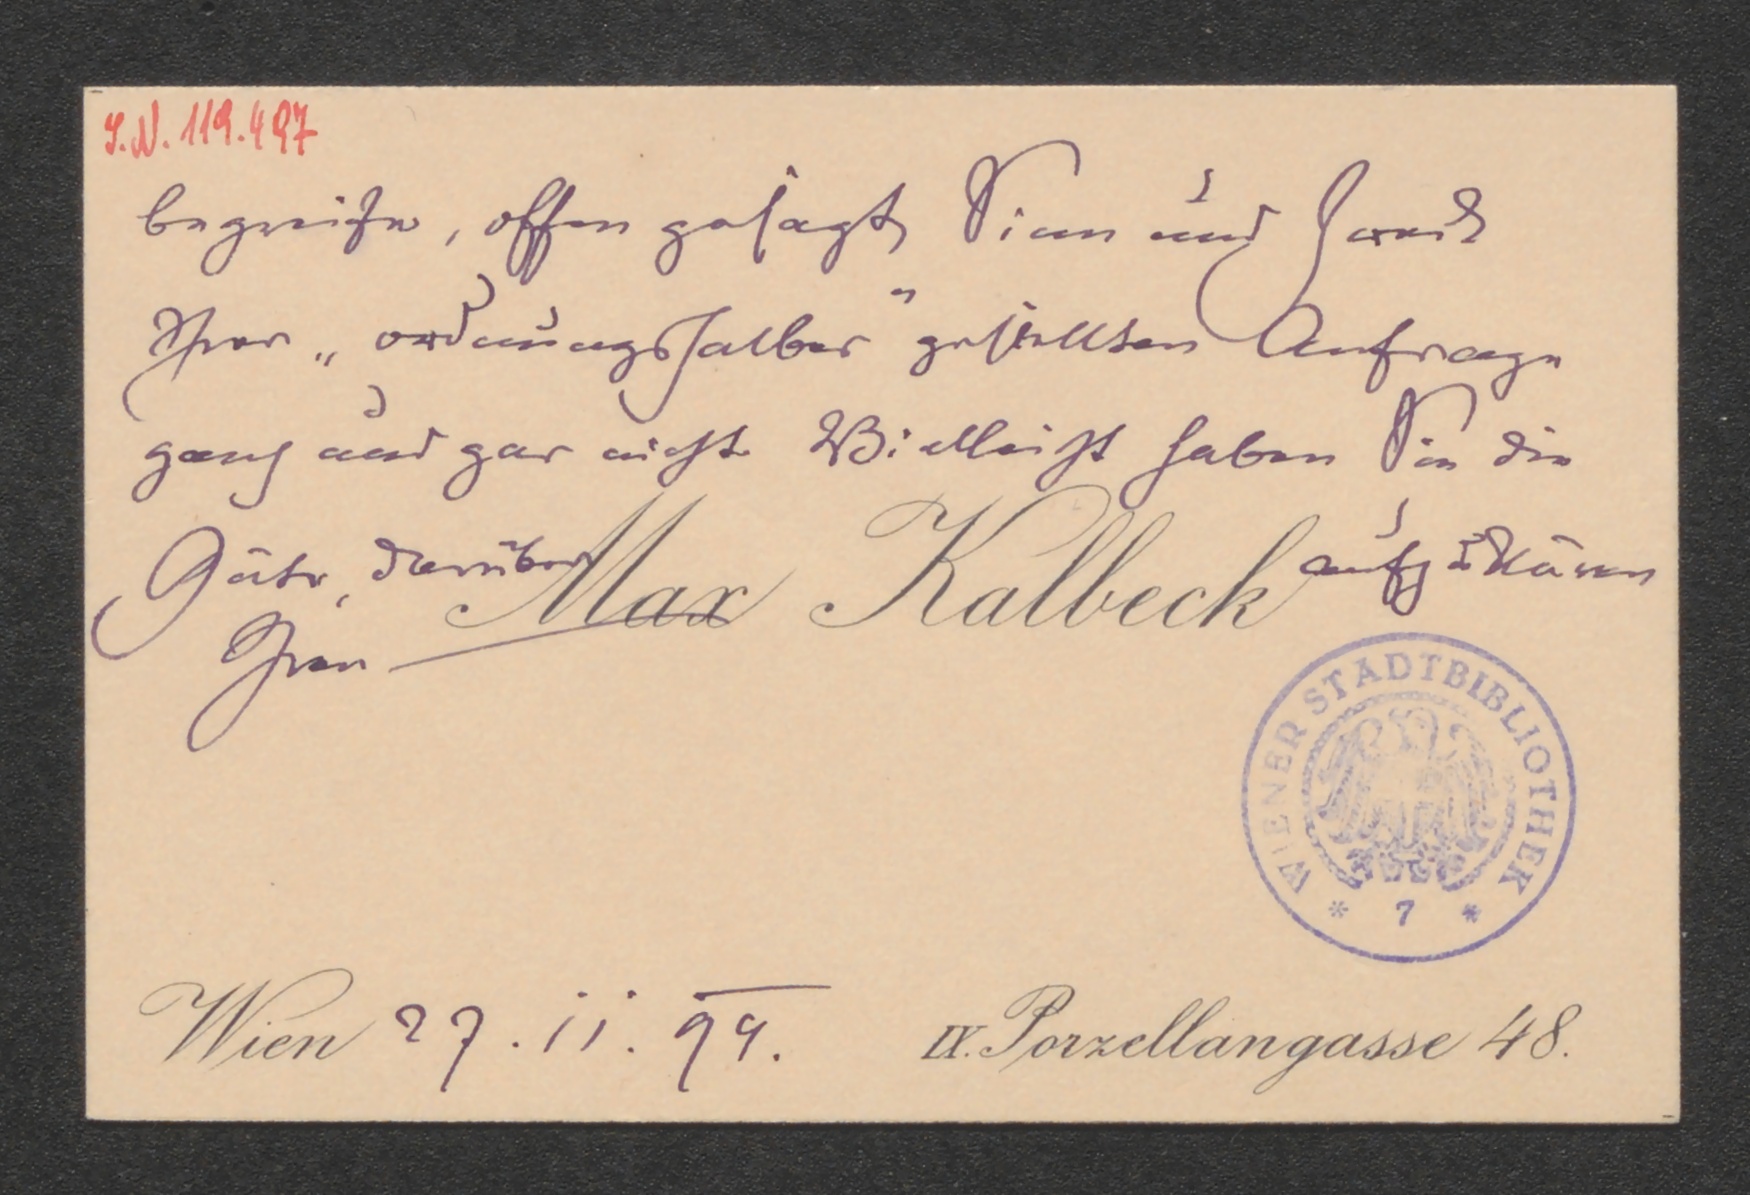 I.N. 119.497
begreife, offen gesagt, Sinn und Zweck
Ihrer „ordnungshalber" gestellten Anfrage
ganz und gar nicht. Vielleicht haben Sie die
Güte, darüber Max Kalbeck aufzuklären
Ihren
WIENER STADTBIBLIOTHEK
* 7 *
Wien 27. 11. 99. IX. Porzellangasse 48.